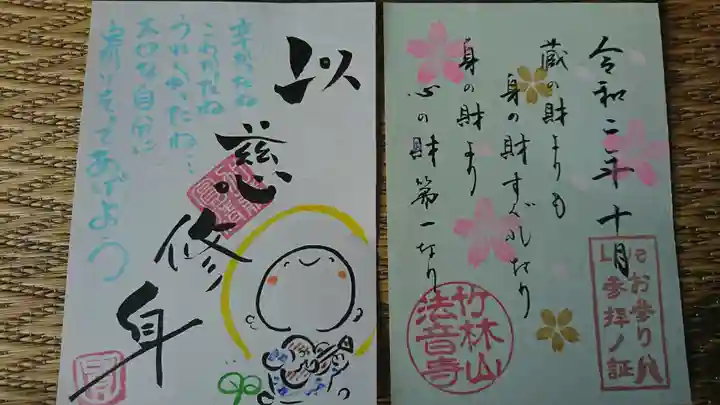 以慈修身
辛かったね
こわかったね
うれしかったね…
大切な自分に
寄りそってあげよう
令和二年十月
蔵の財よりも
身の財すぐれたり
身の財より
心の財第一なり
竹林山
法音寺
お参り
参拝ノ証